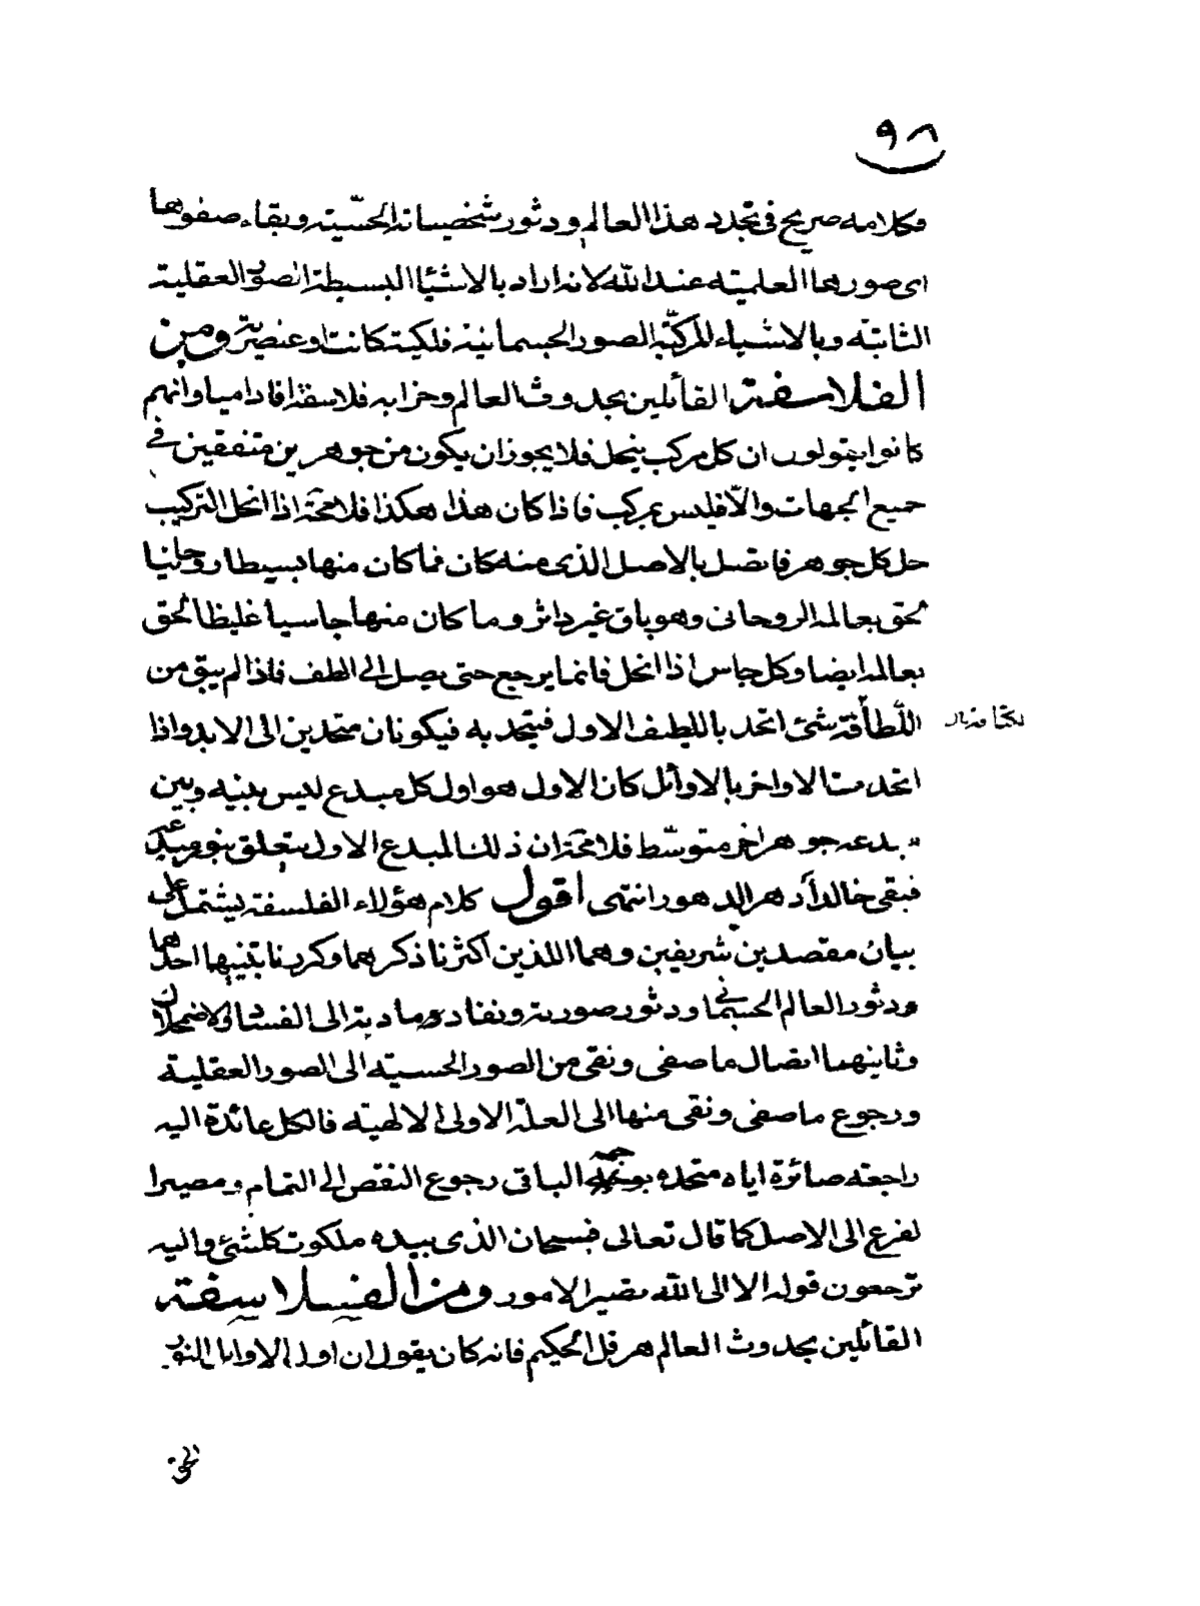 ٩٨
فكلامه صريح فى تجدد هذا العالم ودثور شخصياته الحسّيته وبقاء صفوها
اى صورها العلميته عند الله لانه اراد بالاشيا البسيطة الصور العقلية
الثابته وبالاشياء المركبّة الصور الجسمانية فلكيته كانت او عنصرية ومن
الفلاسفة القائلين بحدوث العالم وخرابه فلاسفة اقاداميا وانهم
كانوا يقولون ان كل مركب ينحل فلا يجوز ان يكون من جوهرين متفقين فى
جميع الجهات والاّ فليس بمركب فاذا كان هذا هكذا فلا محّة اذا انحل التركيب
حل كل جوهر فاتصل بالاصل الذى منه كان فما كان منها بسيطا روحانيا
لحق بعالمه الروحانى وهو باق غير داثر وما كان منها جاسيا غليظا لحق
بعالمه ايضا وكل جاس اذا انحل فانما يرجع حتى يصل الى الطف فاذا لم يبق من
اللّطافة شئ اتحد باللطيف الاول فيتحد به فيكونان متحدين الى الابد واذا
اتحدت الاواخر بالاوائل كان الاول هو اول كل مبدع ليس بينه وبين
مبدعه جوهر اخر متوسّط فلا محّة ان ذلك المبدع الاول متعلق بنور مبدعه
فبقى خالداً دهر الدهور انتهى اقول كلام هؤلاء الفلسفة يشتمل على
بيان مقصدين شريفين وهما اللذين اكثرنا ذكرهما وكررنا تبنيها احدهما
ودثور العالم الجسمانى ودثور صورته ونفاد مادية الى الفساد والاضمحلال
وثانيهما اتصال ما صفى ونقى من الصور الحسيته الى الصور العقلية
ورجوع ما صفى ونقى منها الى العلة الاولى الالهيته فالكل عائدة اليه
راجعته صائرة اياه متحده بوجهه الباقى رجوع النقص الى التمام ومصيرا
لفرع الى الاصل كما قال تعالى فسبحان الذى بيده ملكوت كلشئ واليه
ترجعون قوله الا الى الله تصير الامور ومن الفيلاسفة
القائلين بحدوث العالم هرقل الحكيم فانه كان يقول ان اول الاوايل النور